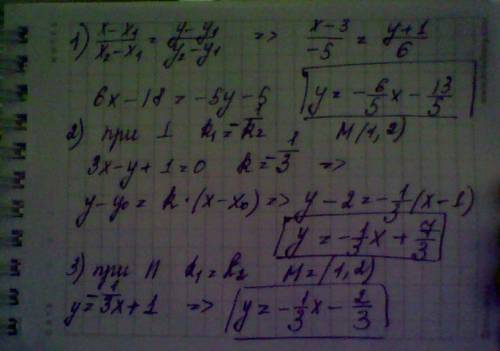 1) (x-x₁)/(x₂-x₁) = (y-y₁)/(y₂-y₁) => (x-3)/-5 = (y+1)/6
6x-18 = -5y-5 y = -6/5x - 13/5
2) при ⊥ k₁ = -1/k₂ M(1,2)
3x-y+1=0 k = -1/3 =>
y-y₀ = k·(x-x₀) => y-2 = -1/3(x-1)
y = -1/3x + 7/3
3) при || k₁ = k₂ M=(1,2)
y = -1/3x+1 => y = -1/3x - 2/3